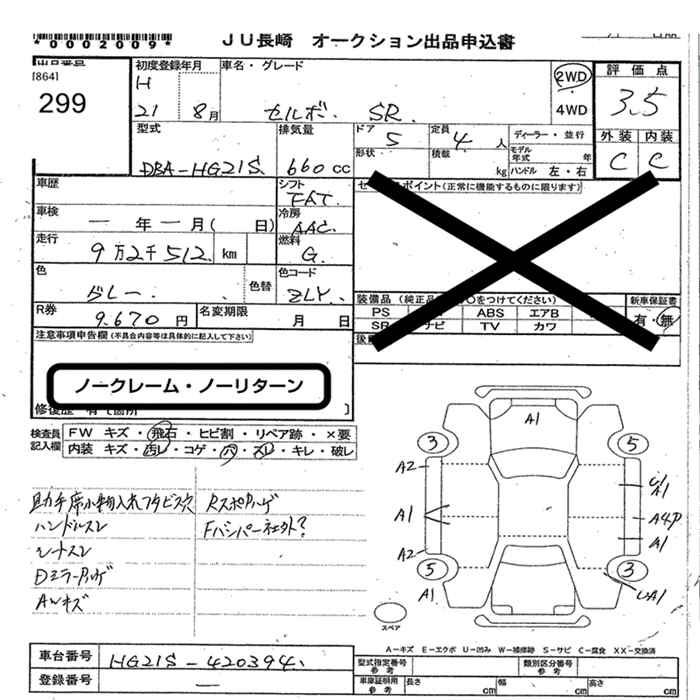 *0002009* JU長崎 オークション出品申込書
出品番号 初度登録年月 車名・グレード 2WD 評価点
[864] H 3.5
299 21 8月 セルボ. SR. 4WD
外装 内装
型式 排気量 ドア 5 定員 4人 ディーラー・並行 C C
形状 積載 kg モデル年式 年
DBA-HG21S. 660cc ハンドル 左・右
車歴 シフト FAT. セールスポイント(正常に機能するものに限ります)
車検 ー年ー月( 日) 冷房 AAC.
走行 9万2千512. km 燃料 G.
色 色替 色コード
グレー. ZLY. 装備品 新車保証書
R券 9.670円 名変期限 月 日 PS ABS エアB 有・無
SR ナビ TV カワ
注意事項申告欄(不具合内容等は具体的に記入して下さい)
ノークレーム・ノーリターン
修復歴 有(箇所 ]
検査員記入欄 FW キズ・飛石・ヒビ割・リペア跡・×要
内装 キズ・汚レ・コゲ・穴・スレ・キレ・破レ
助手席小物入れフタビス穴 Rスポハゲ
ハンドルスレ Fバンパー社外?
シートスレ
Dミラーハゲ
AWキズ
A1
3 5
A2
A1
A1
A4P
A2 A1
5 3
A1 UA1
スペア
A-キズ E-エクボ U-凹み W-補修跡 S-サビ C-腐食 XX-交換済
車台番号 HG21S-420394.
登録番号 ー
型式指定番号 参考 類別区分番号 参考
車庫証明用 参考 長さ cm 幅 cm 高さ cm